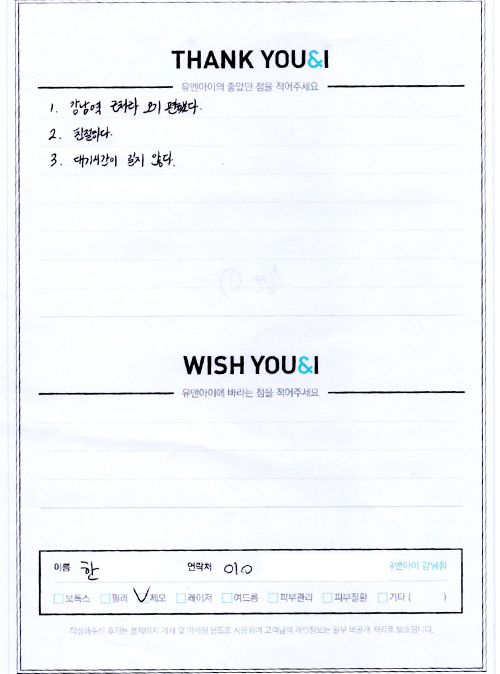 THANK YOU&I
유앤아이의 좋았던 점을 적어주세요
1. 강남역 근처라 오기 편했다.
2. 친절하다.
3. 대기시간이 길지 않다.
WISH YOU&I
유앤아이에 바라는 점을 적어주세요
이름 한 연락처 010 유앤아이 강남점
보톡스 필러 제모 레이저 여드름 피부관리 피부질환 기타 ( )
작성해주신 후기는 홈페이지 게재 및 마케팅 용도로 사용되며 고객님의 개인정보는 일부 비공개 처리로 보호됩니다.